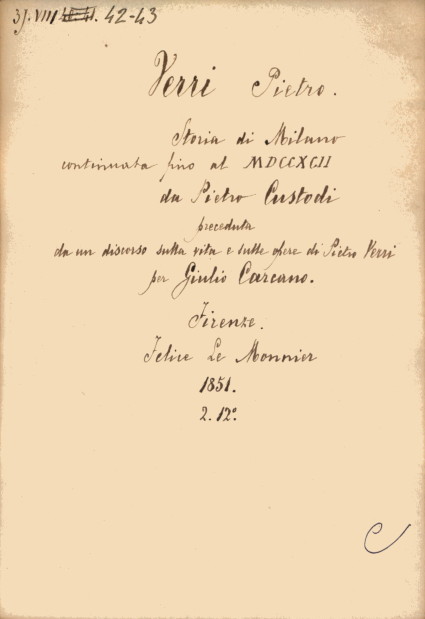 37. VIII 42-43
Verri Pietro.
Storia di Milano
continuata fino al MDCCXCII
da Pietro Custodi
preceduta
da un discorso sulla vita e sulle opere di Pietro Verri
per Giulio Carcano.
Firenze.
Felice Le Monnier
1851.
2. 12º
C